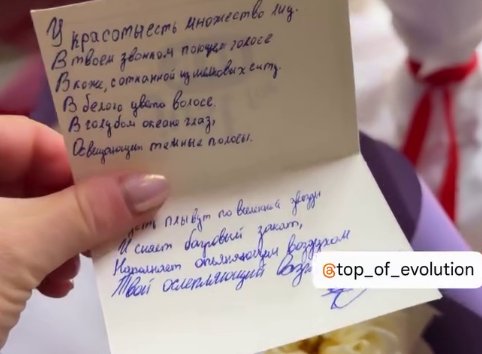 У красоты есть множество лиц.
В твоем звонком поющем голосе
В коже, сотканной из шелковых
В белого цвета волосе.
В голубом океане глаз,
Освещающих темные полосы.
плывут по вселенной звезды
И сияет багровый закат,
Наполняет опьяняющим воздухом
Твой ослепляющий
@top_of_evolution